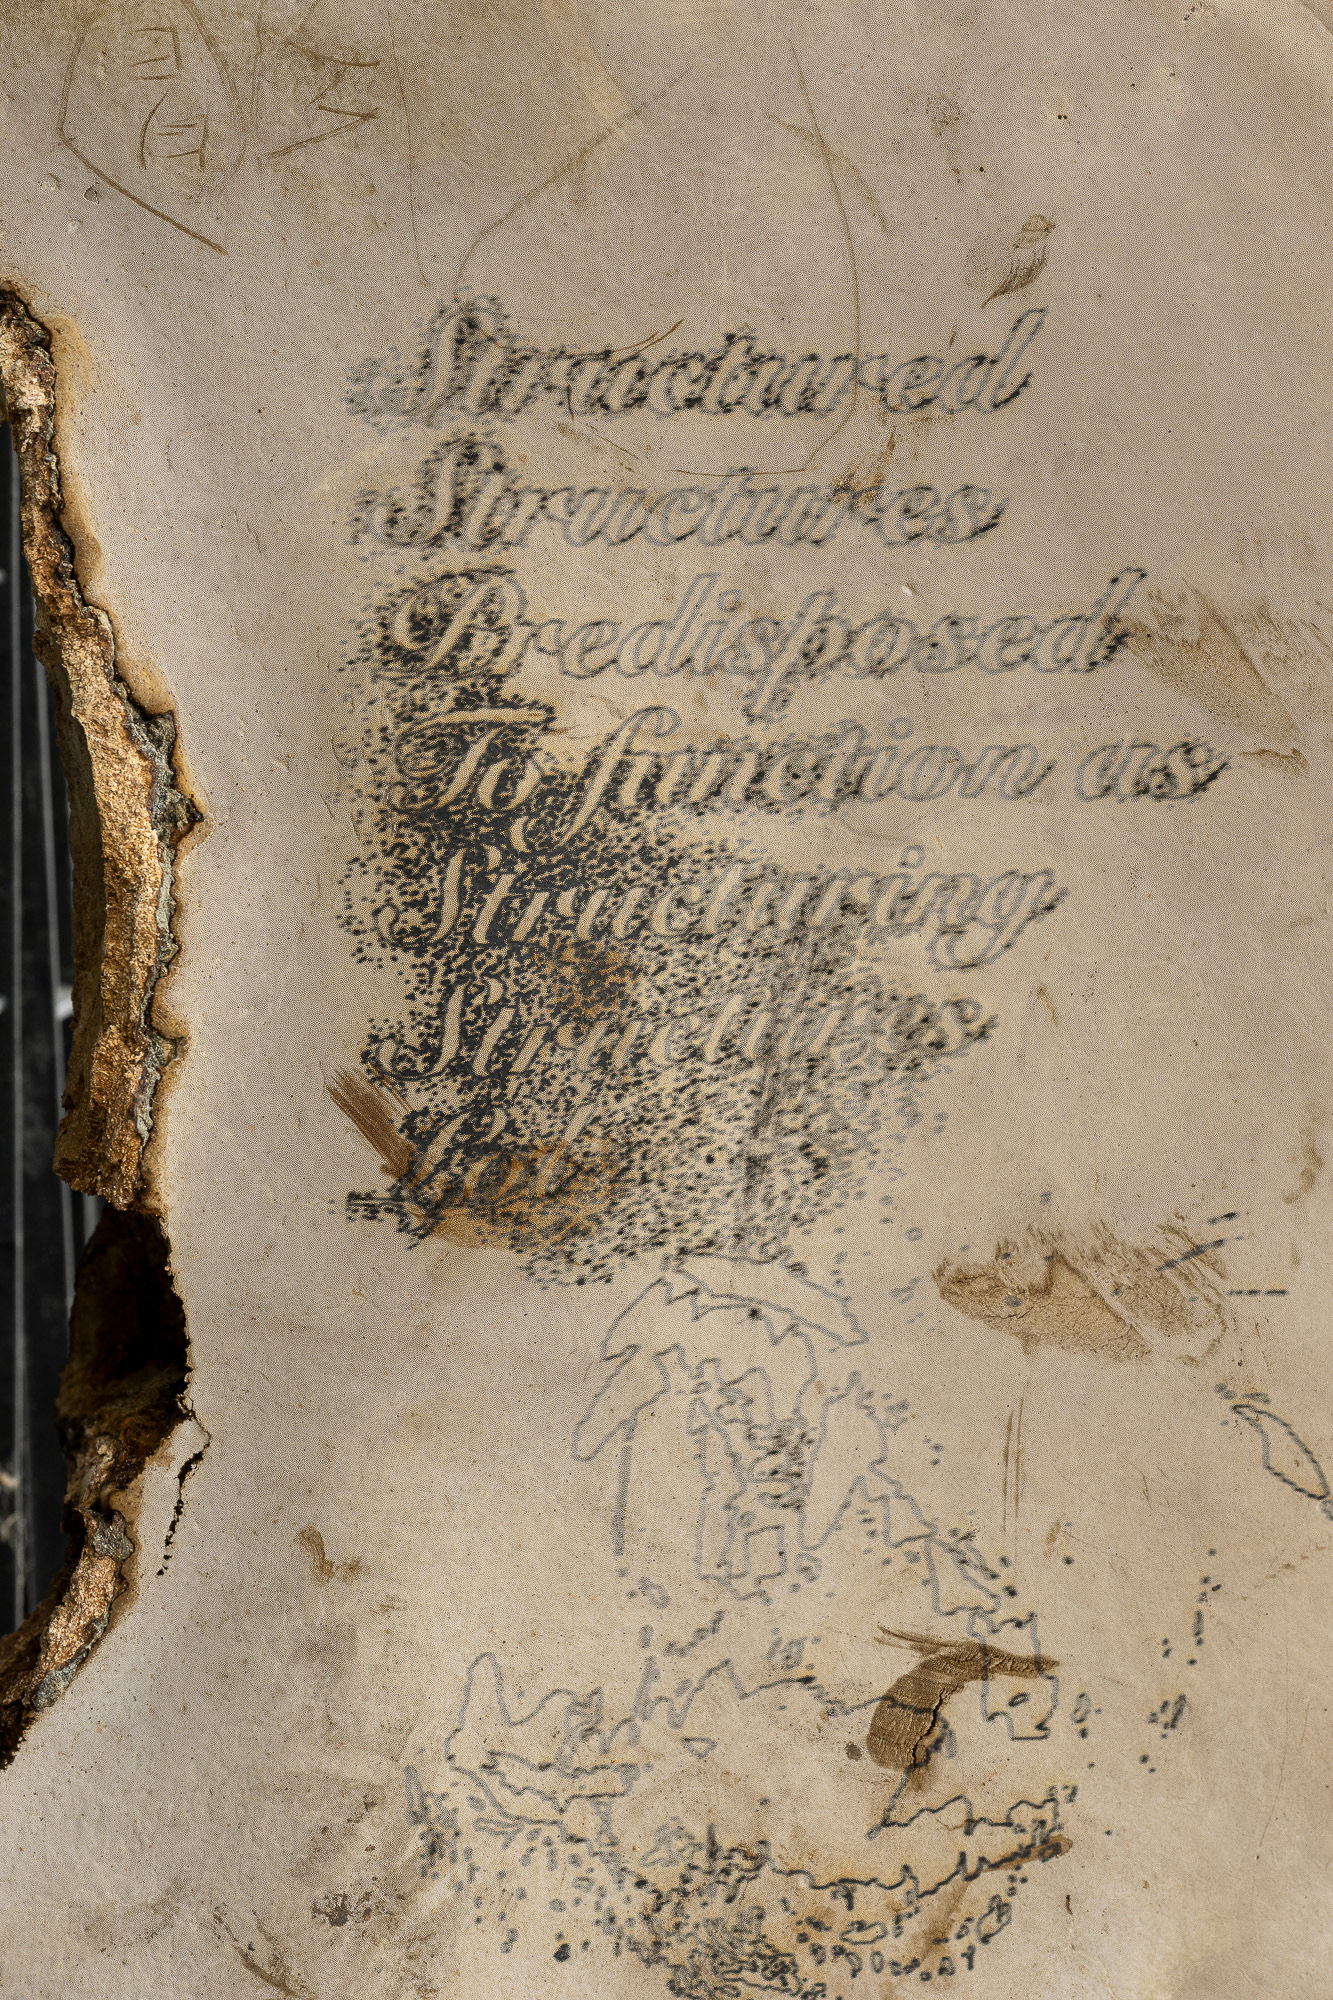 Structured
Structures
Predisposed
To function as
Structuring
Structures